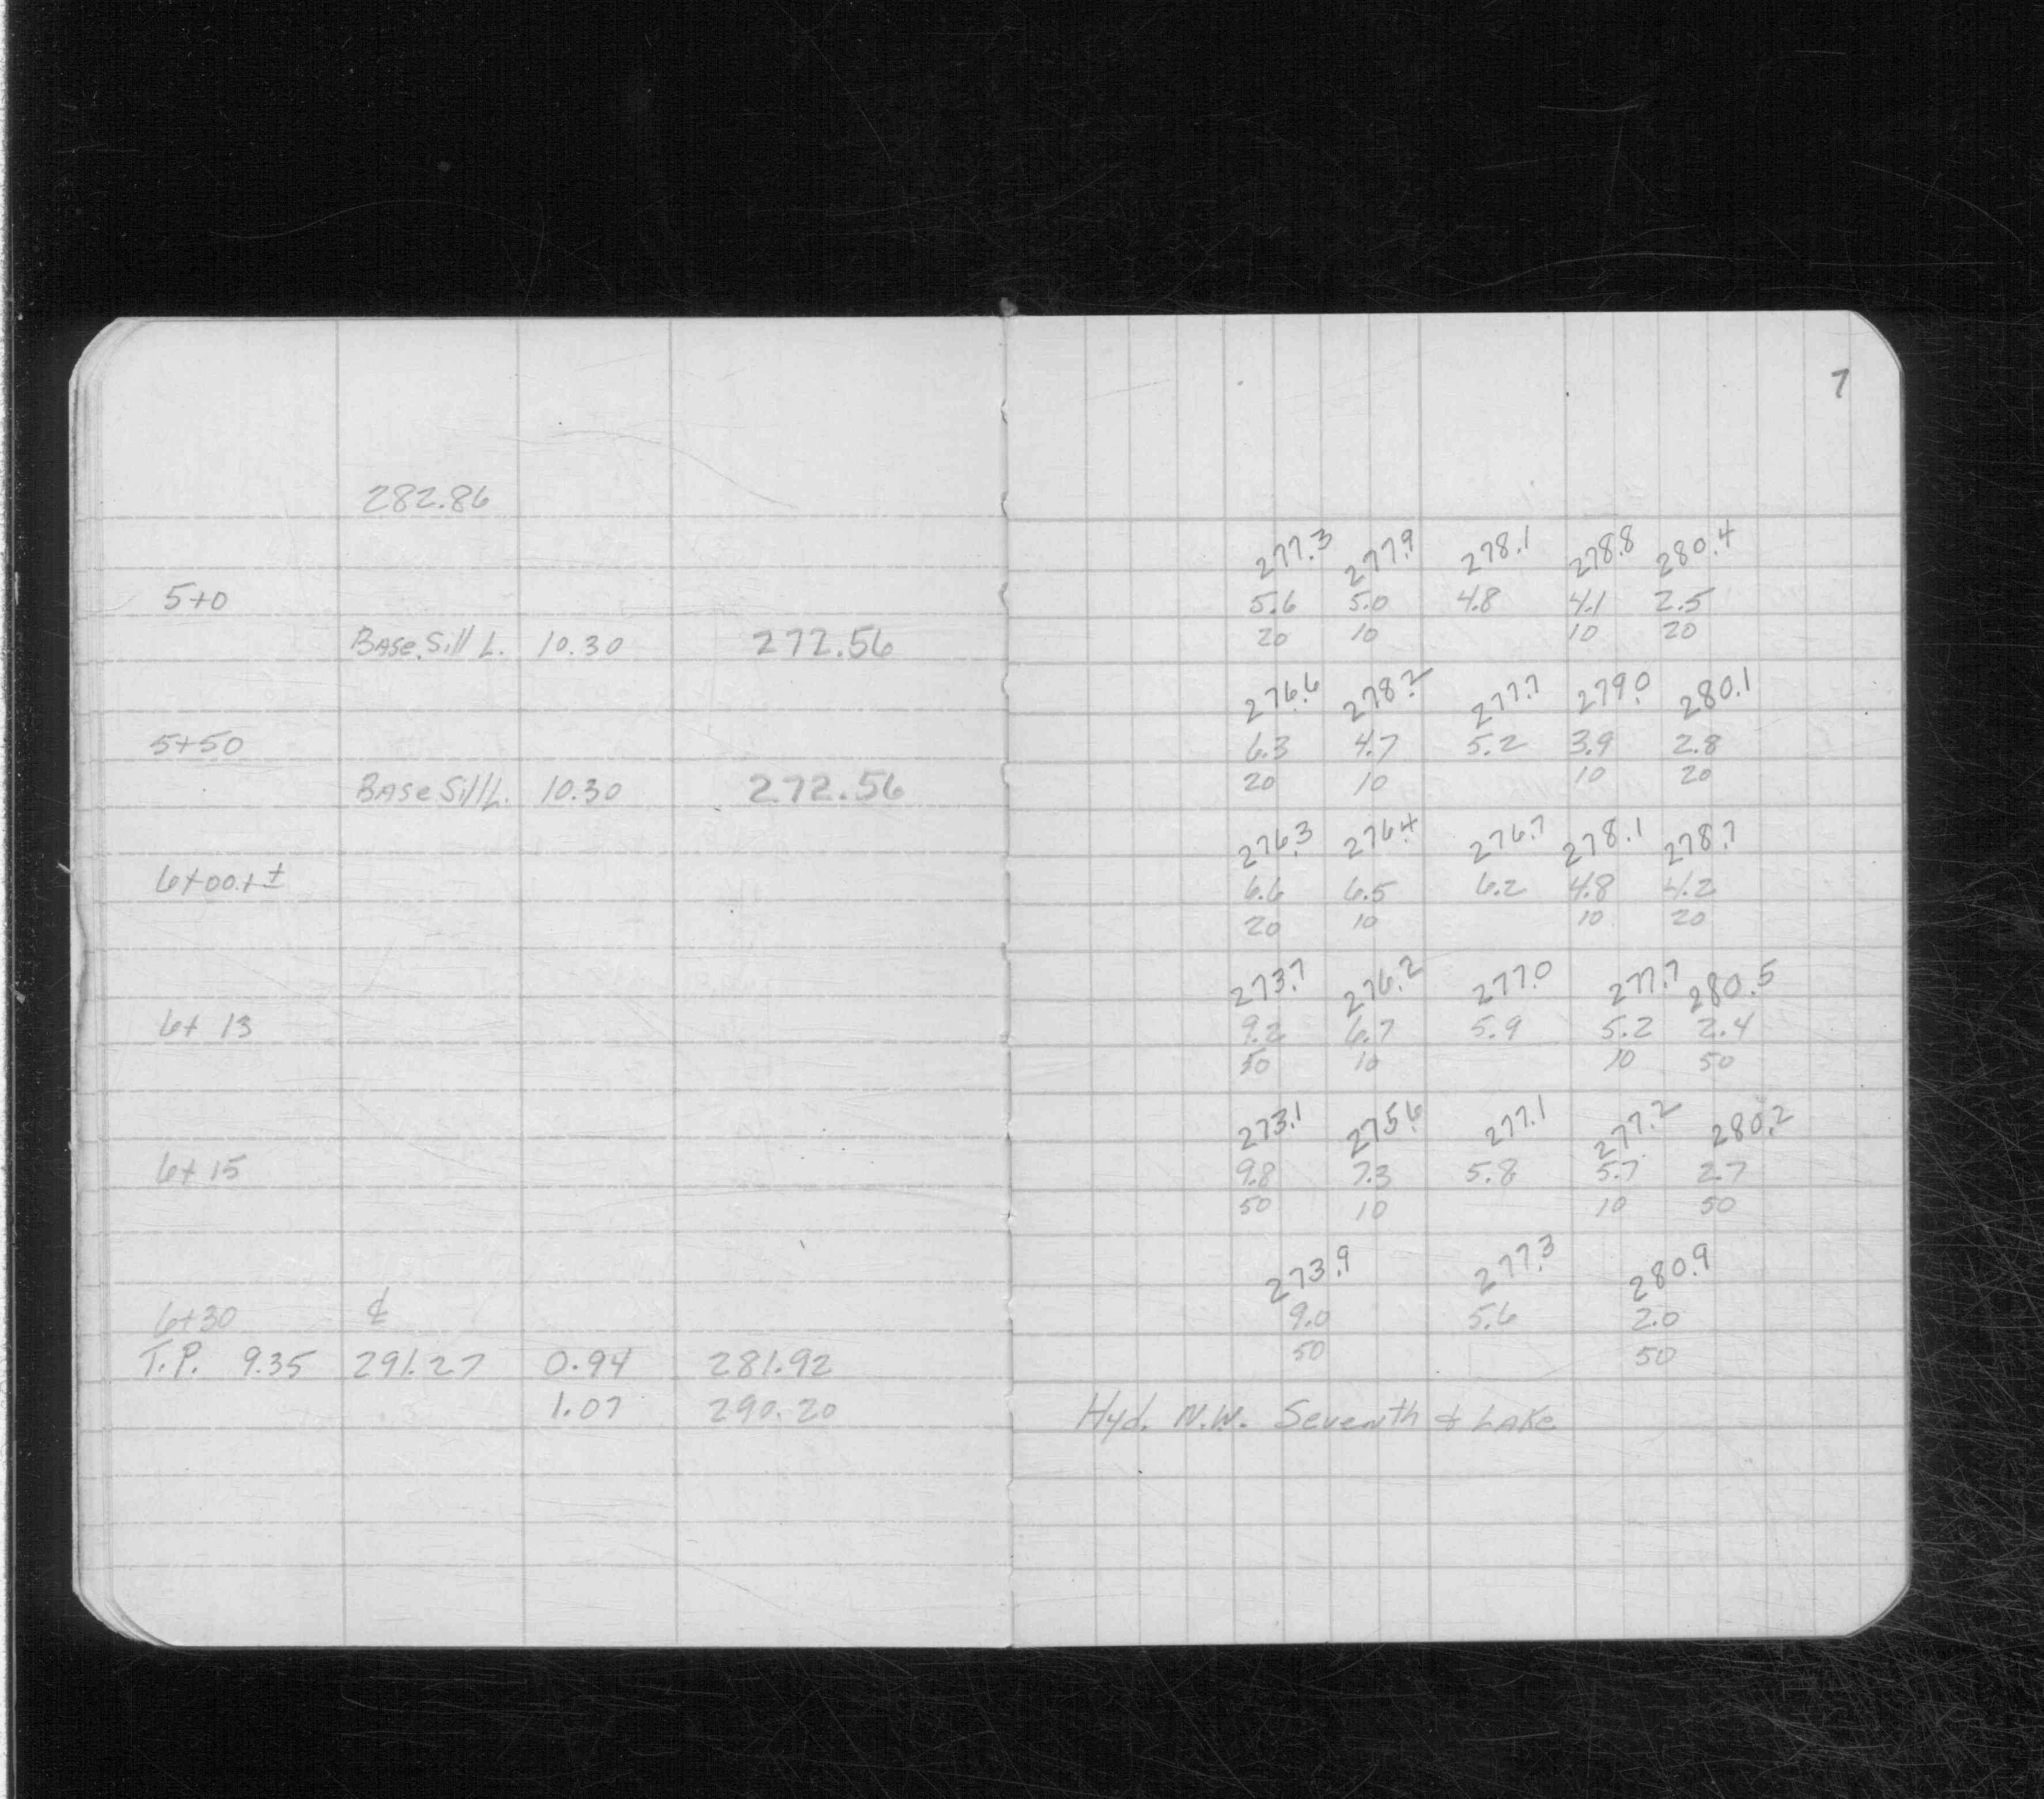 7
282.86
277.3 277.9 278.1 278.8 280.4
5+0 5.6 5.0 4.8 4.1 2.5
Base Sill L. 10.30 272.56 20 10 10 20
276.6 278.2 277.7 279.0 280.1
5+50 6.3 4.7 5.2 3.9 2.8
Base Sill L. 10.30 272.56 20 10 10 20
276.3 276.4 276.7 278.1 278.7
6+00.1± 6.6 6.5 6.2 4.8 4.2
20 10 10 20
273.7 276.2 277.0 277.7 280.5
6+13 9.2 6.7 5.9 5.2 2.4
50 10 10 50
273.1 275.6 277.1 277.2 280.2
6+15 9.8 7.3 5.8 5.7 2.7
50 10 10 50
273.9 277.3 280.9
6+30 ℄ 9.0 5.6 2.0
T.P. 9.35 291.27 0.94 281.92 50 50
1.07 290.20 Hyd. N.W. Seventh & Lake